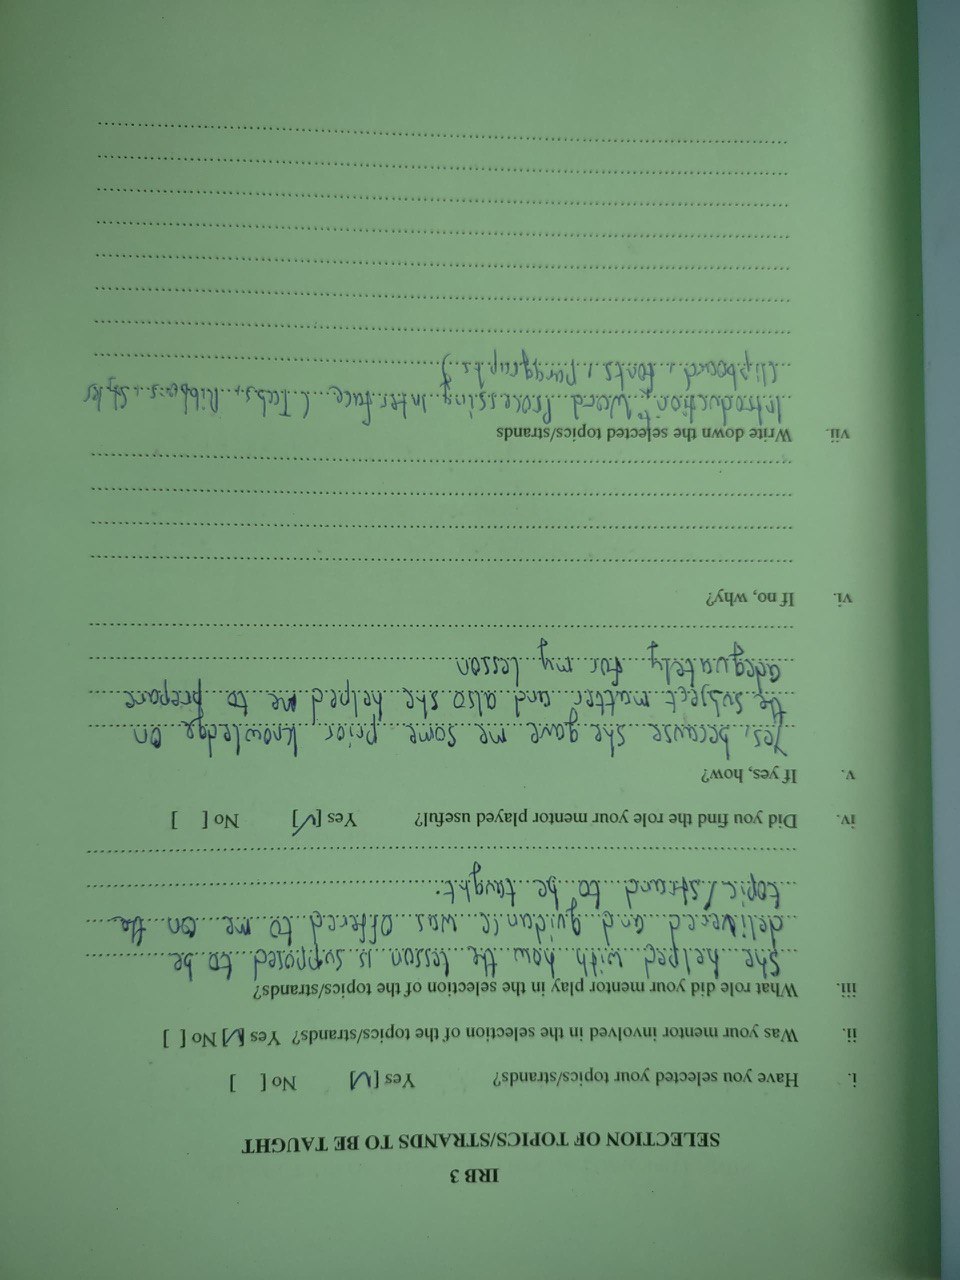 IRB 3
SELECTION OF TOPICS/STRANDS TO BE TAUGHT
i. Have you selected your topics/strands? Yes [✓] No [ ]
ii. Was your mentor involved in the selection of the topics/strands? Yes [✓] No [ ]
iii. What role did your mentor play in the selection of the topics/strands?
She helped with how the lesson is supposed to be
delivered and guidance was offered to me on the
topic/strand to be taught.
iv. Did you find the role your mentor played useful? Yes [✓] No [ ]
v. If yes, how?
Yes, because she gave me some prior knowledge on
the subject matter and also she helped me to prepare
adequately for my lesson
vi. If no, why?
vii. Write down the selected topics/strands
Introduction to Word Processing Interface (Tabs, Ribbons, Styles
clipboard, fonts, paragraphs)